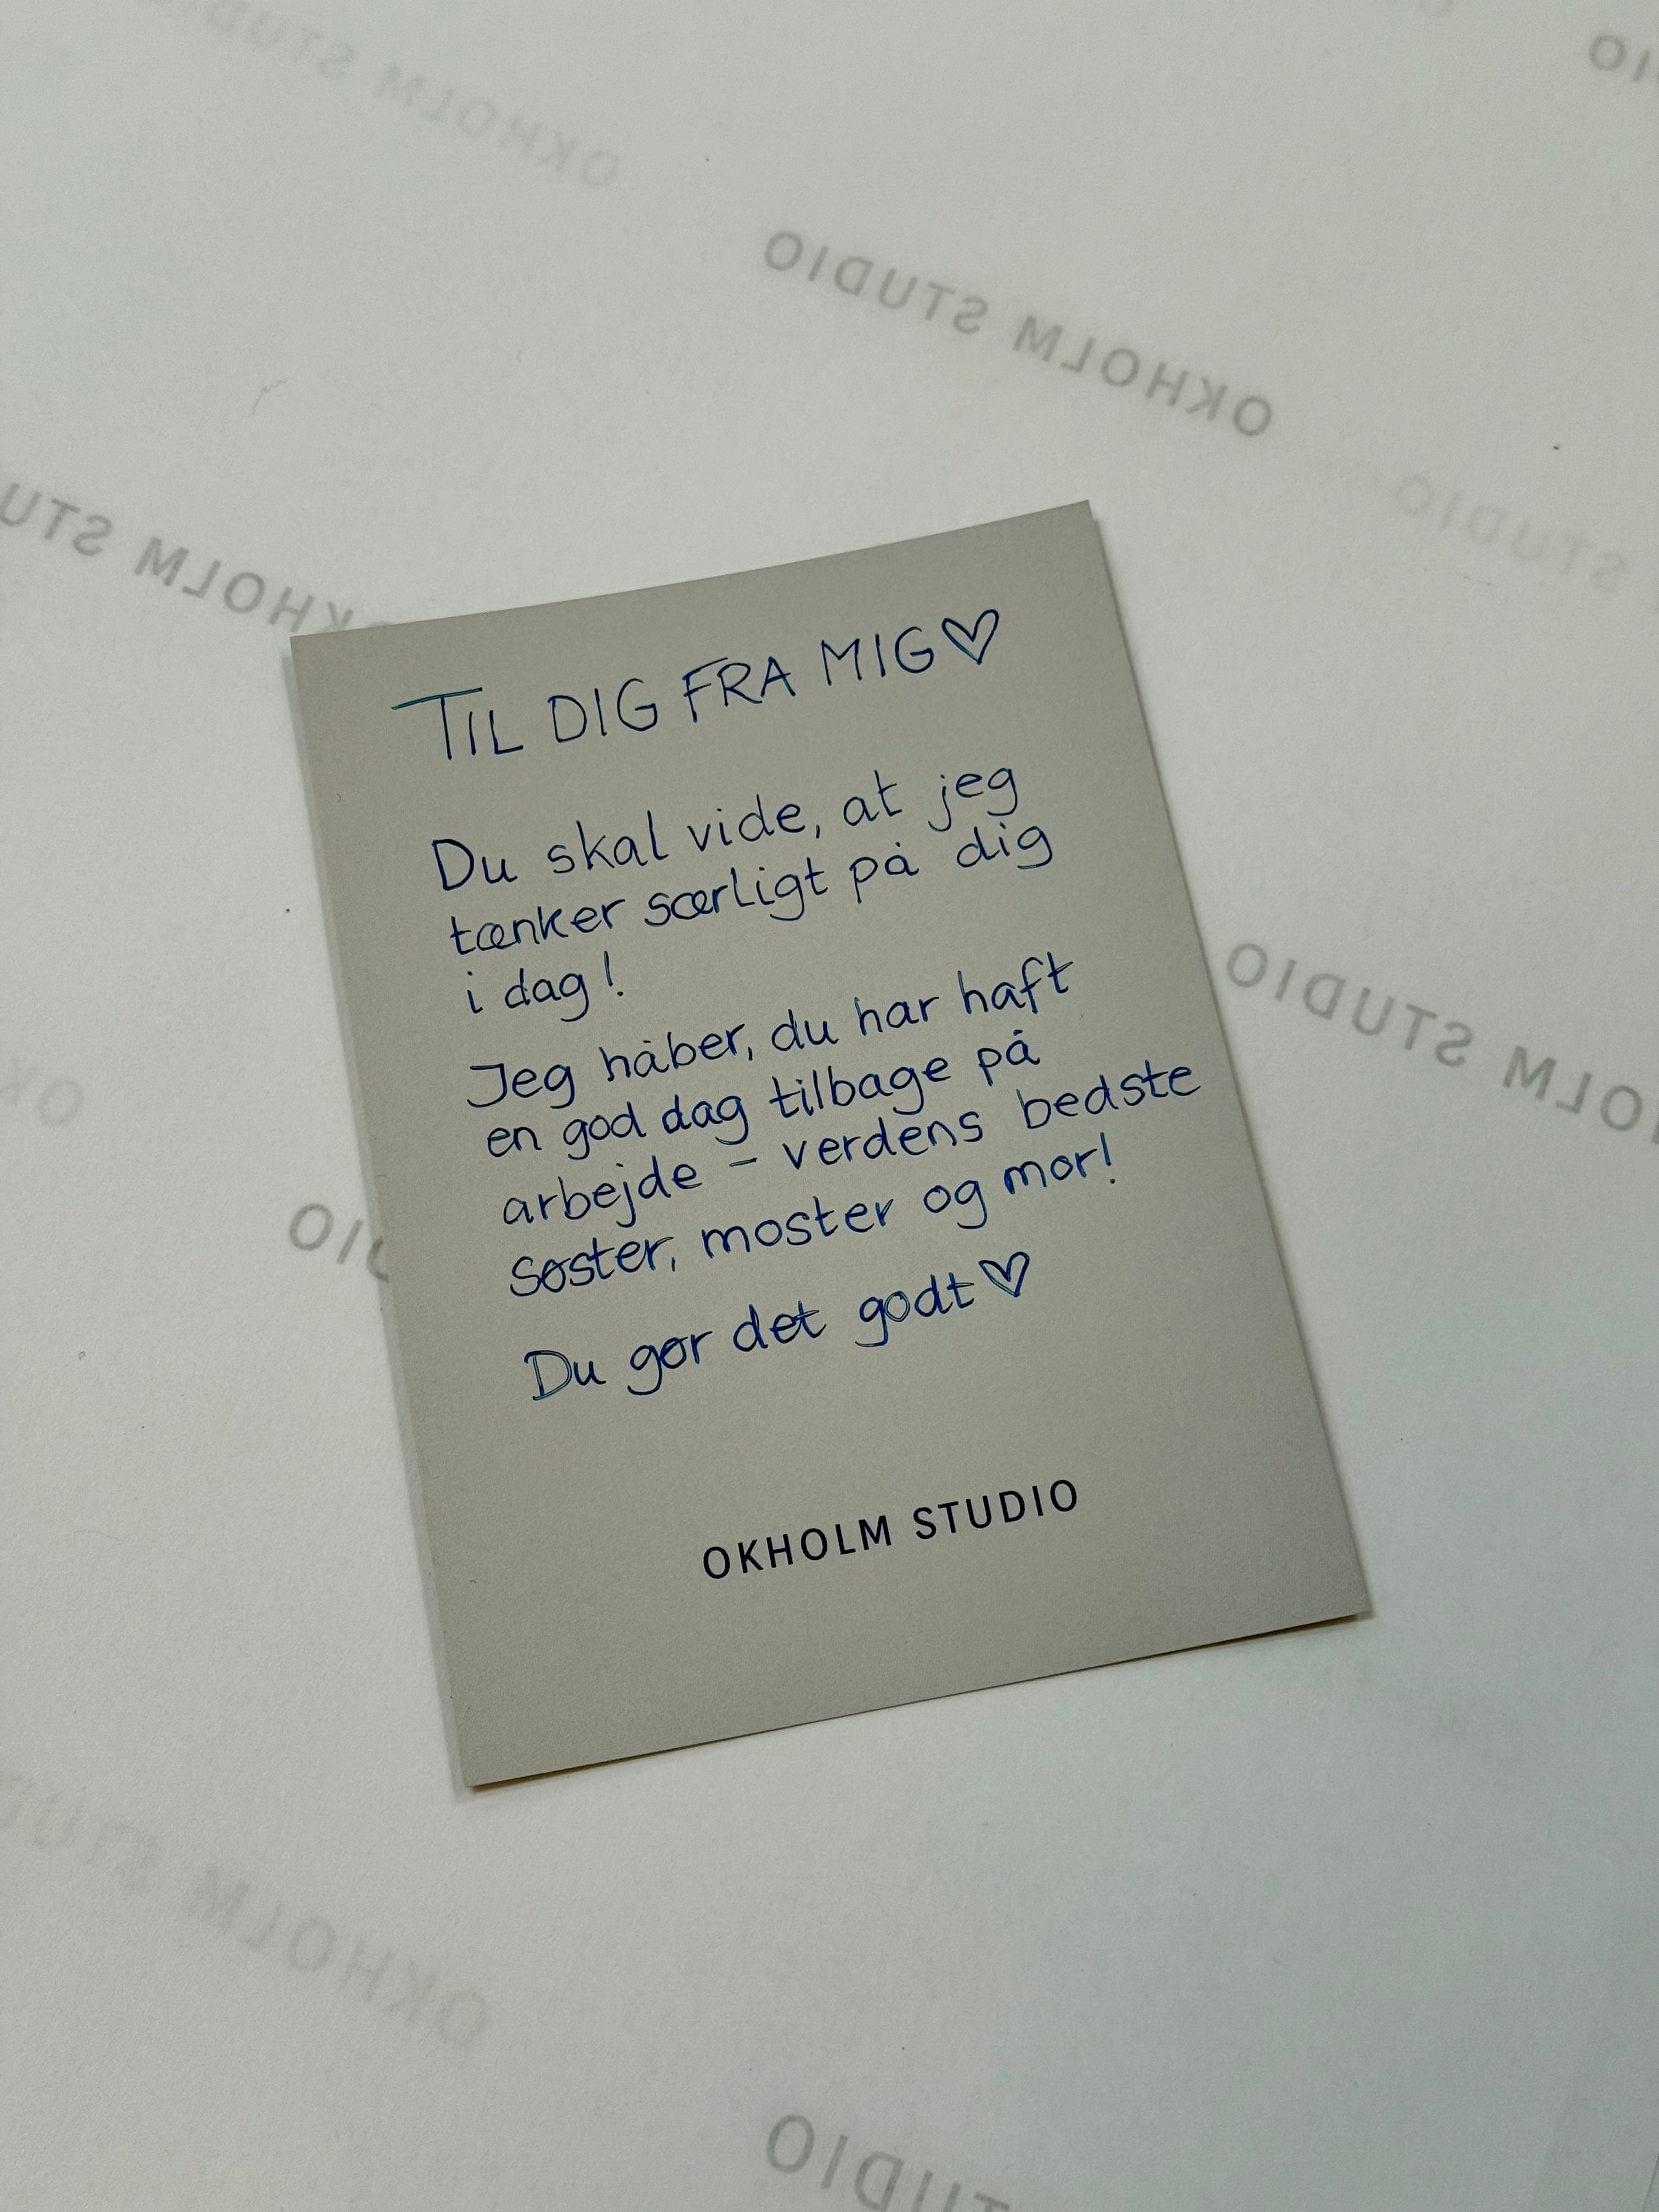 OKHOLM STUDIO
IO
OKHOLM STUDIO
STUDIO
KHOLM STU
TIL DIG FRA MIG♡
Du skal vide, at jeg
tænker særligt på dig
i dag!
Jeg håber, du har haft
en god dag tilbage på
arbejde – verdens bedste
søster, moster og mor!
Du gør det godt♡
OKHOLM STUDIO
OLM STUDIO
OK
DIO
OKHOLM STUD
TUDIO